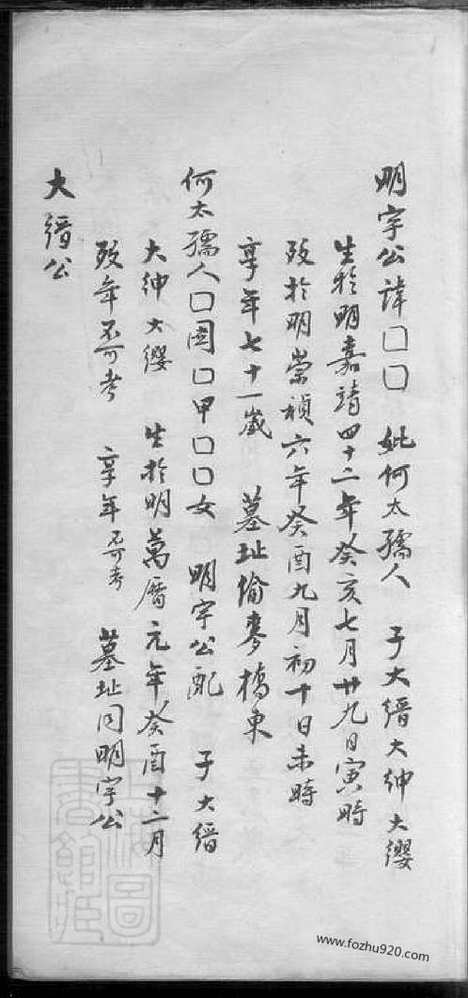 明宇公諱□□　妣何太孺人　子大縉大紳大纓
生於明嘉靖四十二年癸亥七月廿九日寅時
歿於明崇禎六年癸酉九月初十日未時
享年七十一歲　墓址愉麥橋東
何太孺人□圖□甲□□女　明宇公配　子大縉
大紳大纓　生於明萬曆元年癸酉十二月
歿年不可考　享年不可考　墓址同明宇公
大縉公
www.fozhu920.com